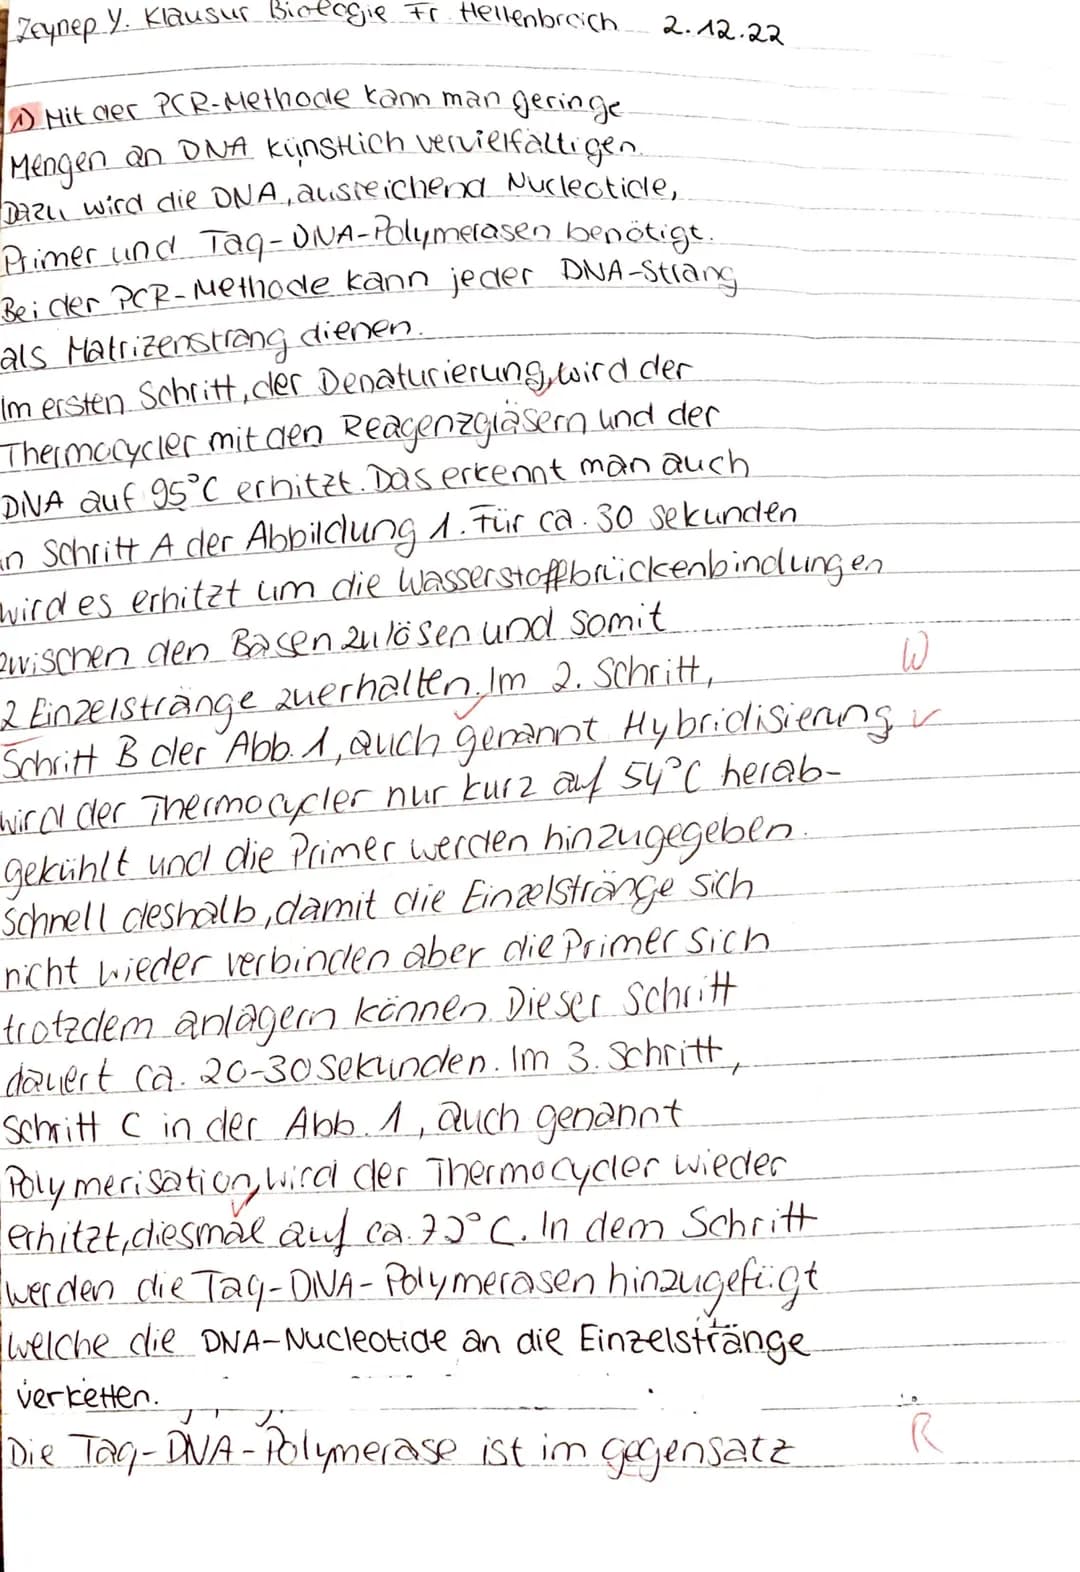 Zeynep Y. Klausur Biologie Fr. Hellenbroich 2.12.22
1) Mit der PCR-Methode kann man geringe
Mengen an DNA künstlich vervielfältigen.
Dazu wird die DNA, ausreichend Nucleotide,
Primer und Taq-DNA-Polymerasen benötigt.
Bei der PCR-Methode kann jeder DNA-Strang
als Matrizenstrang dienen.
Im ersten Schritt, der Denaturierung, wird der
Thermocycler mit den Reagenzgläsern und der
DNA auf 95°C erhitzt. Das erkennt man auch
in Schritt A der Abbildung 1. Für ca. 30 Sekunden
wird es erhitzt um die Wasserstoffbrückenbindungen
zwischen den Basen zu lösen und somit
2 Einzelstränge zuerhalten. Im 2. Schritt,
W
Schritt B der Abb. 1, auch genannt Hybridisierung
wird der Thermocycler nur kurz auf 54°C herab-
gekühlt und die Primer werden hinzugegeben.
Schnell deshalb, damit die Einzelstränge sich
nicht wieder verbinden aber die Primer sich
trotzdem anlagern können. Dieser Schritt
dauert ca. 20-30 Sekunden. Im 3. Schritt,
Schritt C in der Abb. 1, auch genannt
Polymerisation, wird der Thermocycler wieder
erhitzt, diesmal auf ca. 72°C. In dem Schritt
werden die Taq-DNA-Polymerasen hinzugefügt
welche die DNA-Nucleotide an die Einzelstränge
verketten.
Die Taq-DNA-Polymerase ist im gegensatz
R